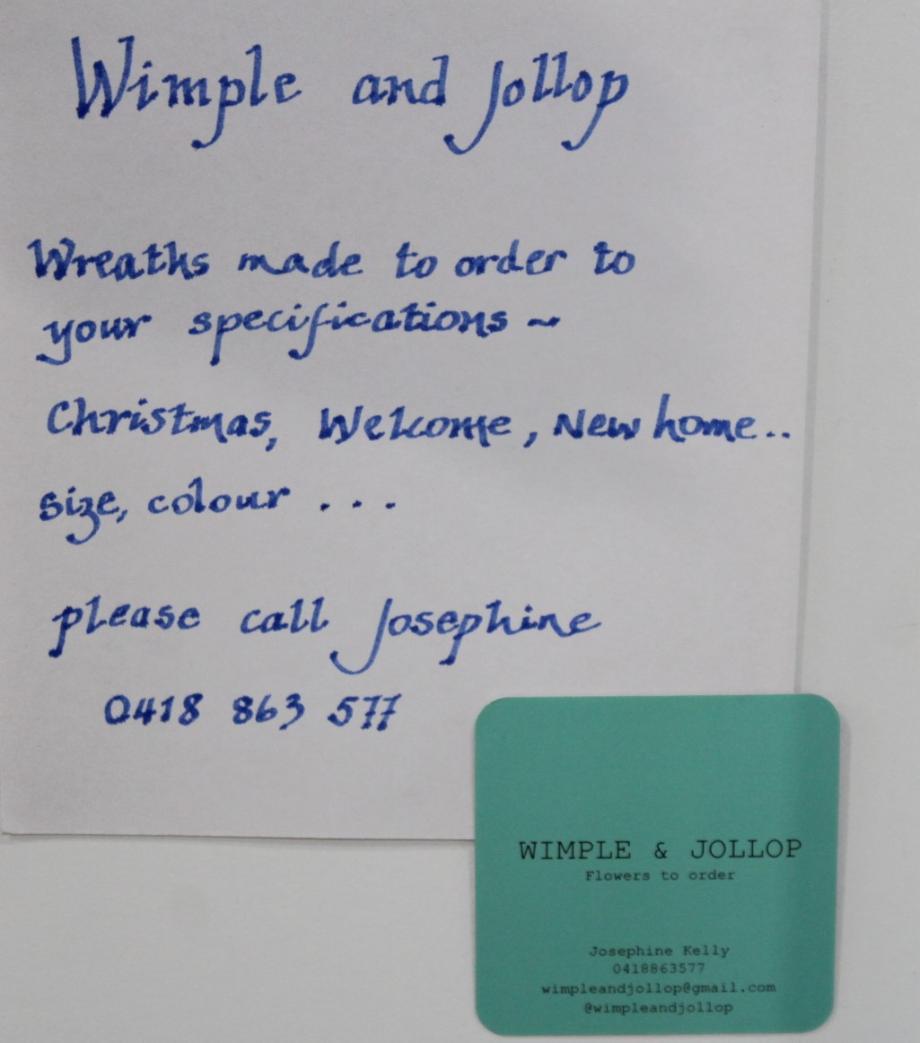 Wimple and Jollop
Wreaths made to order to
your specifications ~
Christmas, Welcome, New home..
size, colour ...
please call Josephine
0418 863 577
WIMPLE & JOLLOP
Flowers to order
Josephine Kelly
0418863577
wimpleandjollop@gmail.com
@wimpleandjollop